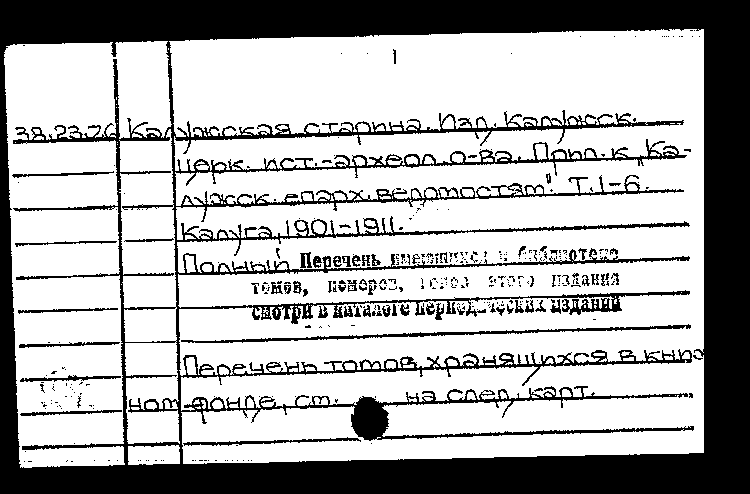 1
38.23.26 Калужская старина. Изд. Калужск.
церк. ист.-археол. о-ва. Прил. к „Ка-
лужск. епарх. ведомостям". Т. 1-6.
Калуга, 1901-1911.
Полный Перечень имеющихся в библиотеке
томов, номеров, годов этого издания
смотри в каталоге периодических изданий
Перечень томов, хранящихся в книж
ном фонде, см. на след. карт.